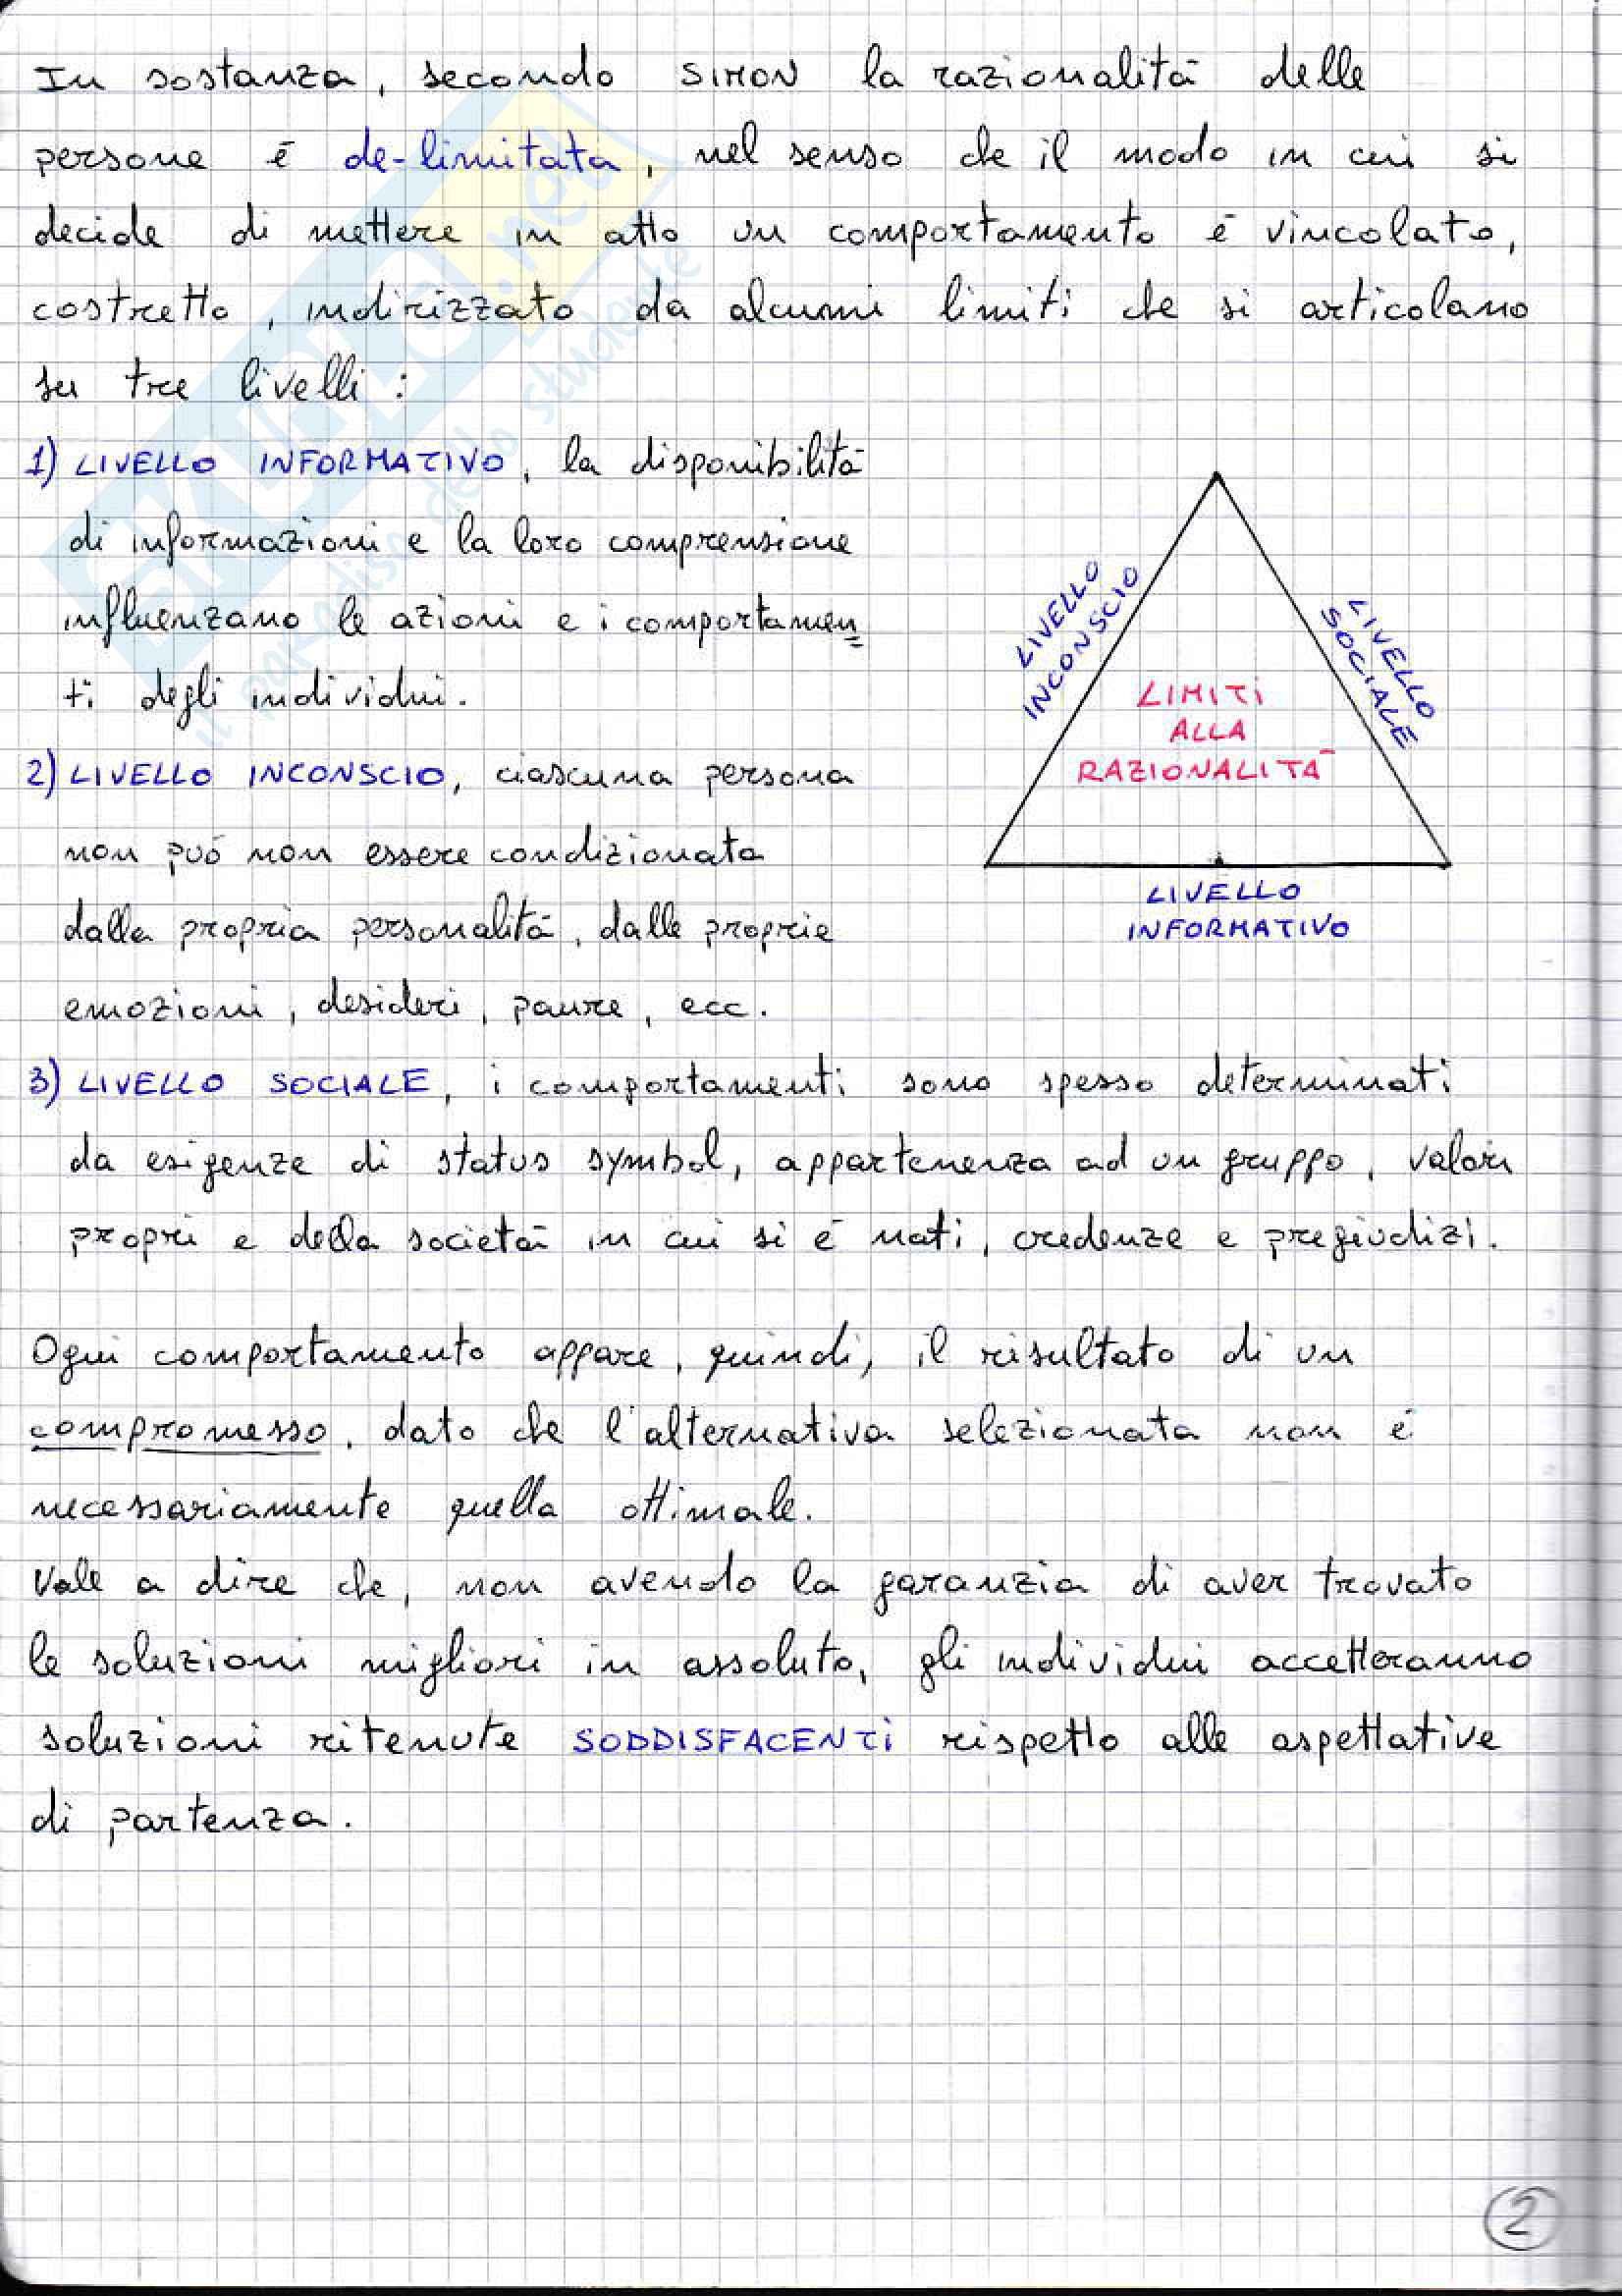 In sostanza, secondo SIMON la razionalità delle
persone è de-limitata, nel senso che il modo in cui si
decide di mettere in atto un comportamento è vincolato,
costretto, indirizzato da alcuni limiti che si articolano
su tre livelli:
1) LIVELLO INFORMATIVO, la disponibilità
di informazioni e la loro comprensione
influenzano le azioni e i comportamen=
ti degli individui.
2) LIVELLO INCONSCIO, ciascuna persona
non può non essere condizionata
dalla propria personalità, dalle proprie
emozioni, desideri, paure, ecc.
LIVELLO
INCONSCIO
LIVELLO
SOCIALE
LIMITI
ALLA
RAZIONALITÀ
LIVELLO
INFORMATIVO
3) LIVELLO SOCIALE, i comportamenti sono spesso determinati
da esigenze di status symbol, appartenenza ad un gruppo, valori
propri e della società in cui si è nati, credenze e pregiudizi.
Ogni comportamento appare, quindi, il risultato di un
compromesso, dato che l'alternativa selezionata non è
necessariamente quella ottimale.
Vale a dire che, non avendo la garanzia di aver trovato
le soluzioni migliori in assoluto, gli individui accetteranno
soluzioni ritenute SODDISFACENTI rispetto alle aspettative
di partenza.
2
skuola.net
il paradiso dello studente